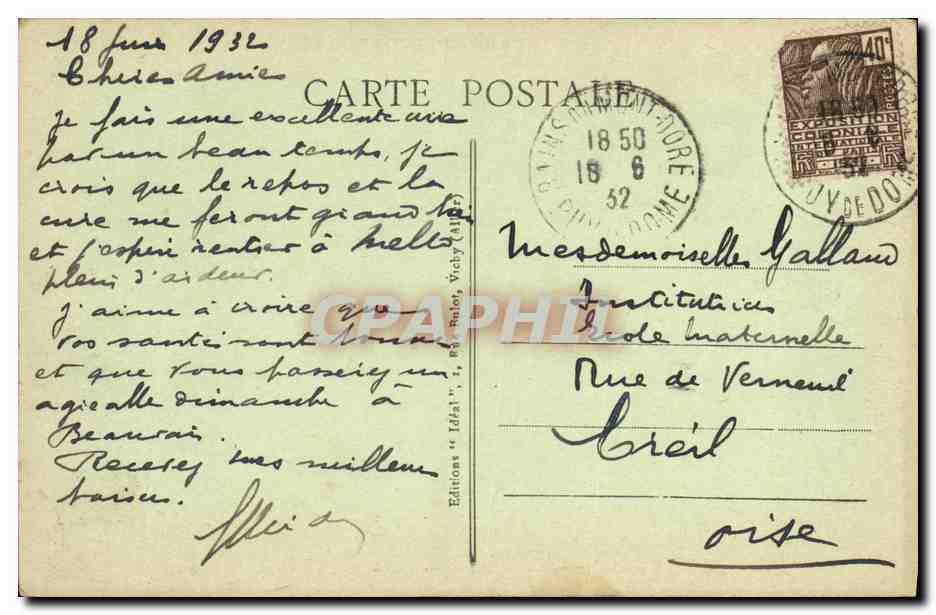 18 Juin 1932
Cheres Amies
CARTE POSTALE
je fais une excellente cure
par un beau temps, je
crois que le repos et la
cure me feront grand bien
et j'espere rentrer à Mello
plein d'ardeur.
J'aime à croire que
vos santés sont bonnes
et que vous passerez un
agréable dimanche à
Beauvais.
Recevez mes meilleurs
baisers.
Editions " Idéal ", 1, Rue Bulot, Vicby (Allier)
BAINS DU MONT-DORE
18 50
18 6
32
PUY DE DOME
40c
POSTES
EXPOSITION
COLONIALE
INTERNATIONALE
PARIS 1931
18 50
6
32
PUY DE DOME
Mesdemoiselles Galland
Institutrices
Ecole Maternelle
Rue de Verneuil
Creil
Oise
CPAPHIL